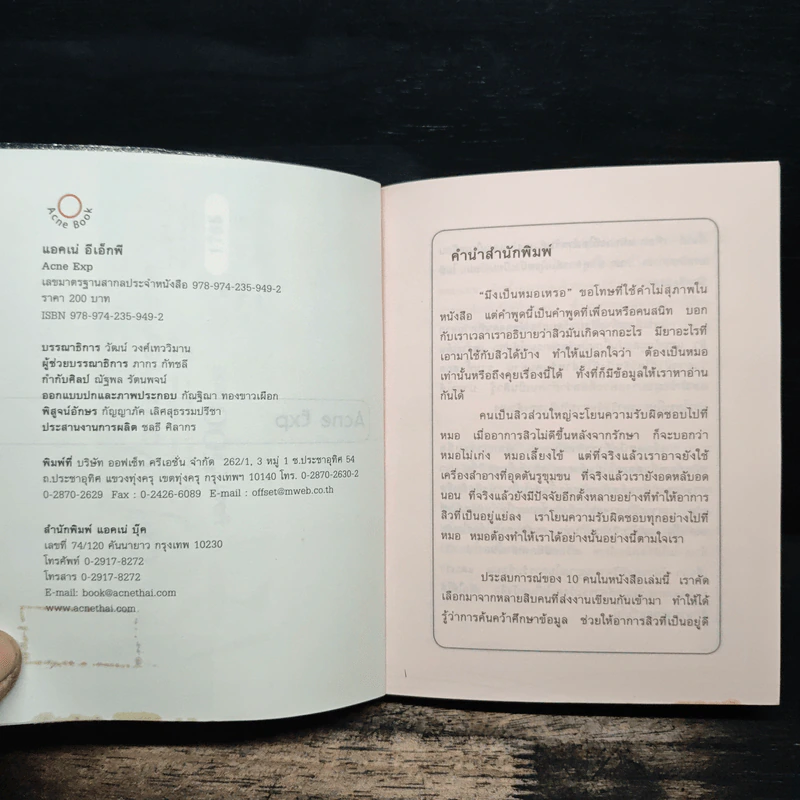 Acne Book
แอคเน่ อีเอ็กพี
Acne Exp
เลขมาตรฐานสากลประจำหนังสือ 978-974-235-949-2
ราคา 200 บาท
ISBN 978-974-235-949-2
บรรณาธิการ วัฒน์ วงศ์เทววิมาน
ผู้ช่วยบรรณาธิการ ภากร กัทชลี
กำกับศิลป ณัฐพล รัตนพจน์
ออกแบบปกและภาพประกอบ กัณฐิฌา ทองขาวเผือก
พิสูจน์อักษร กัญญาภัค เลิศสุธรรมปรีชา
ประสานงานการผลิต ชลธี ศิลากร
พิมพ์ที่ บริษัท ออฟเซ็ท ครีเอชั่น จำกัด 262/1, 3 หมู่ 1 ซ.ประชาอุทิศ 54
ถ.ประชาอุทิศ แขวงทุ่งครุ เขตทุ่งครุ กรุงเทพฯ 10140 โทร. 0-2870-2630-2
0-2870-2629 Fax : 0-2426-6089 E-mail : offset@mweb.co.th
สำนักพิมพ์ แอคเน่ บุ๊ค
เลขที่ 74/120 คันนายาว กรุงเทพ 10230
โทรศัพท์ 0-2917-8272
โทรสาร 0-2917-8272
E-mail: book@acnethai.com
www.acnethai.com
คำนำสำนักพิมพ์
"มึงเป็นหมอเหรอ" ขอโทษที่ใช้คำไม่สุภาพใน
หนังสือ แต่คำพูดนี้เป็นคำพูดที่เพื่อนหรือคนสนิท บอก
กับเราเวลาเราอธิบายว่าสิวมันเกิดจากอะไร มียาอะไรที่
เอามาใช้กับสิวได้บ้าง ทำให้แปลกใจว่า ต้องเป็นหมอ
เท่านั้นหรือถึงคุยเรื่องนี้ได้ ทั้งที่ก็มีข้อมูลให้เราหาอ่าน
กันได้
คนเป็นสิวส่วนใหญ่จะโยนความรับผิดชอบไปที่
หมอ เมื่ออาการสิวไม่ดีขึ้นหลังจากรักษา ก็จะบอกว่า
หมอไม่เก่ง หมอเลี้ยงไข้ แต่ที่จริงแล้วเราอาจยังใช้
เครื่องสำอางที่อุดตันรูขุมขน ที่จริงแล้วเรายังอดหลับอด
นอน ที่จริงแล้วยังมีปัจจัยอีกตั้งหลายอย่างที่ทำให้อาการ
สิวที่เป็นอยู่แย่ลง เราโยนความรับผิดชอบทุกอย่างไปที่
หมอ หมอต้องทำให้เราได้อย่างนั้นอย่างนี้ตามใจเรา
ประสบการณ์ของ 10 คนในหนังสือเล่มนี้ เราคัด
เลือกมาจากหลายสิบคนที่ส่งงานเขียนกันเข้ามา ทำให้ได้
รู้ว่าการค้นคว้าศึกษาข้อมูล ช่วยให้อาการสิวที่เป็นอยู่ดี